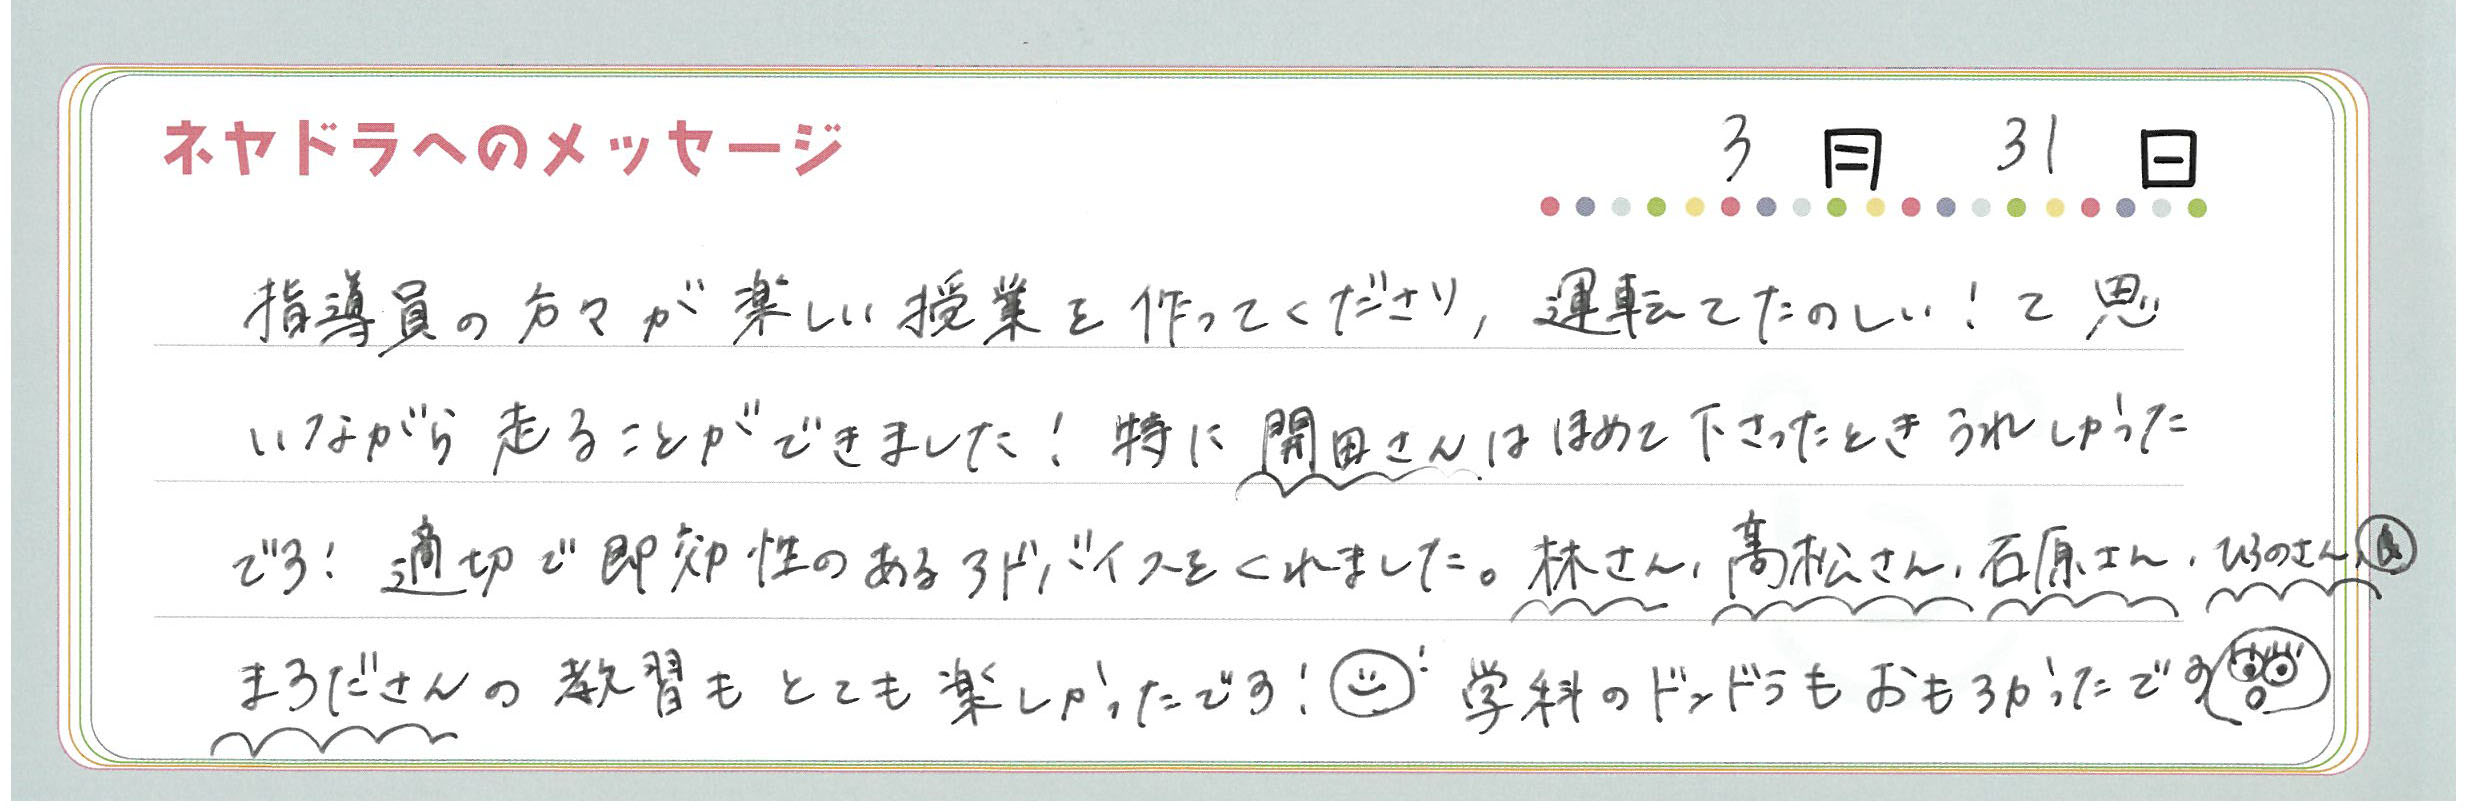 ネヤドラへのメッセージ
3月31日
指導員の方々が楽しい授業を作ってくださり,運転てたのしい!て思
いながら走ることができました!特に開田さんはほめて下さったときうれしかった
です!適切で即効性のあるアドバイスをくれました。林さん,髙松さん,石原さん,ひろのさん
まろださんの教習もとても楽しかったです!学科のドンドラもおもろかったです